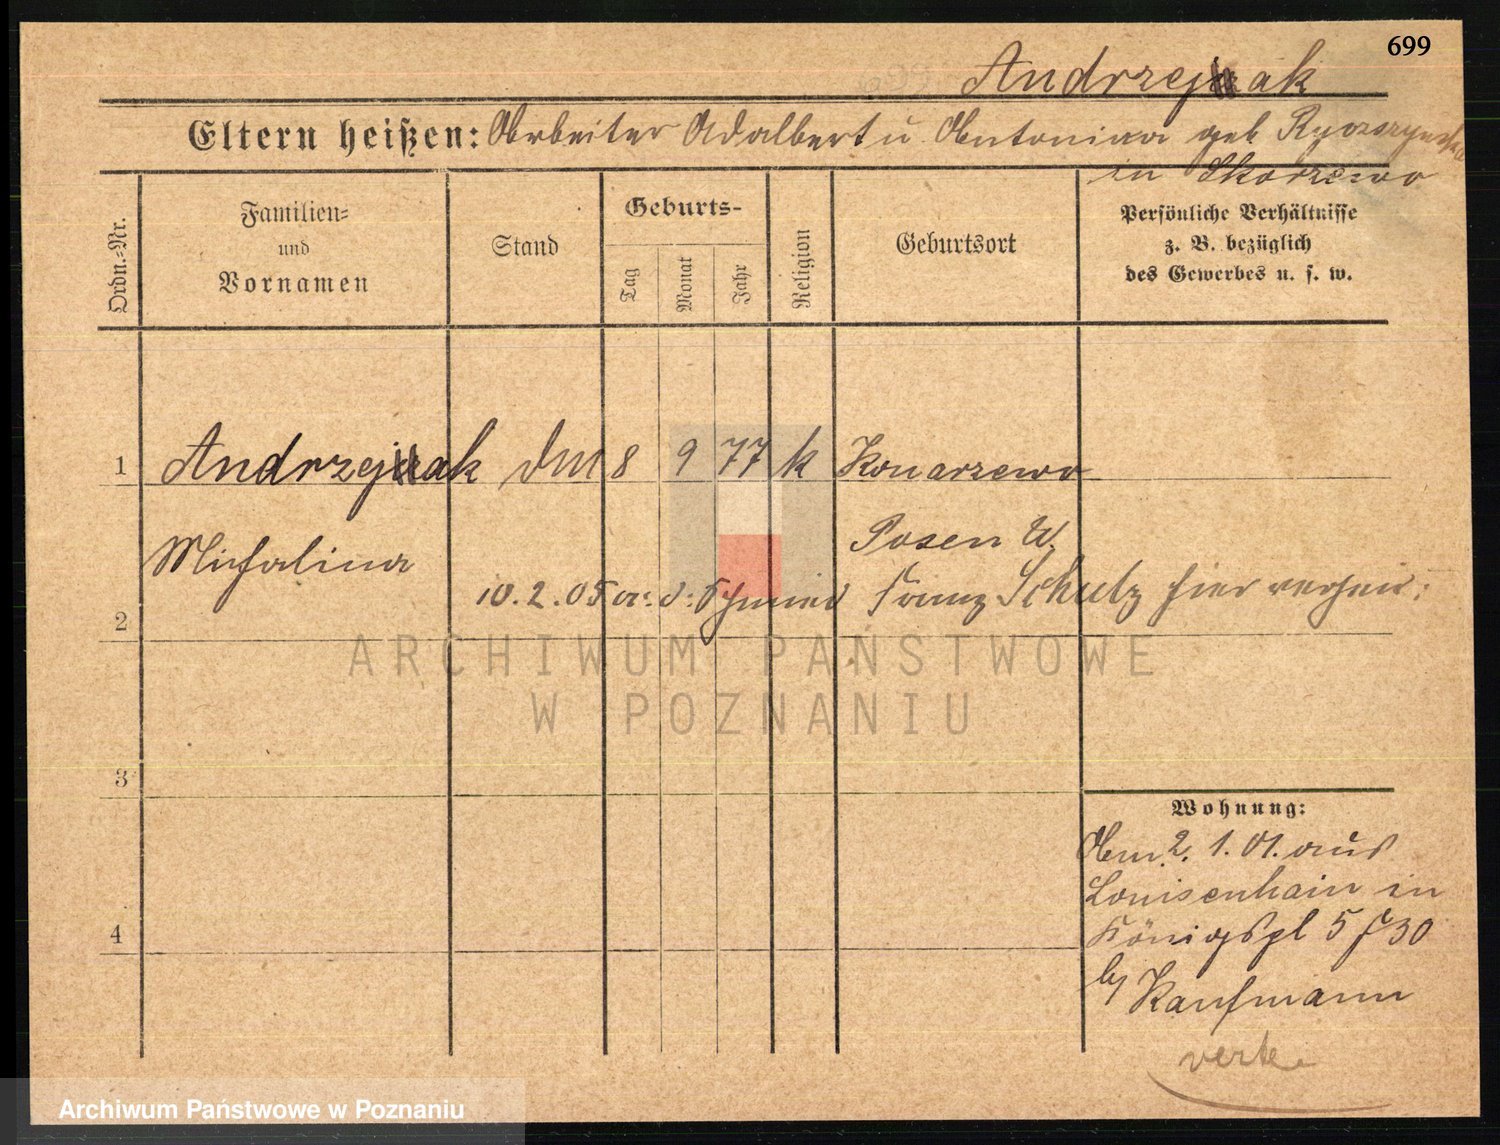 699
Andrzejak
Eltern heißen: Arbeiter Adalbert u Antonina geb
in Skorzewo
Ordn.-Nr.
Familien-
und
Vornamen
Stand
Geburts-
Tag
Monat
Jahr
Religion
Geburtsort
Persönliche Verhältnisse
z. B. bezüglich
des Gewerbes u. s. w.
1 Andrzejak 8 9 77 k Konarzewo
Michalina
Posen W.
2 10.2.05 a: d: Schmied Franz Schulz hier verheir:
3
4
Wohnung:
Am 2. 1. 01. aus
Louisenhain in
Königspl 5 30
by Kaufmann
verte
ARCHIWUM PAŃSTWOWE
W POZNANIU
Archiwum Państwowe w Poznaniu